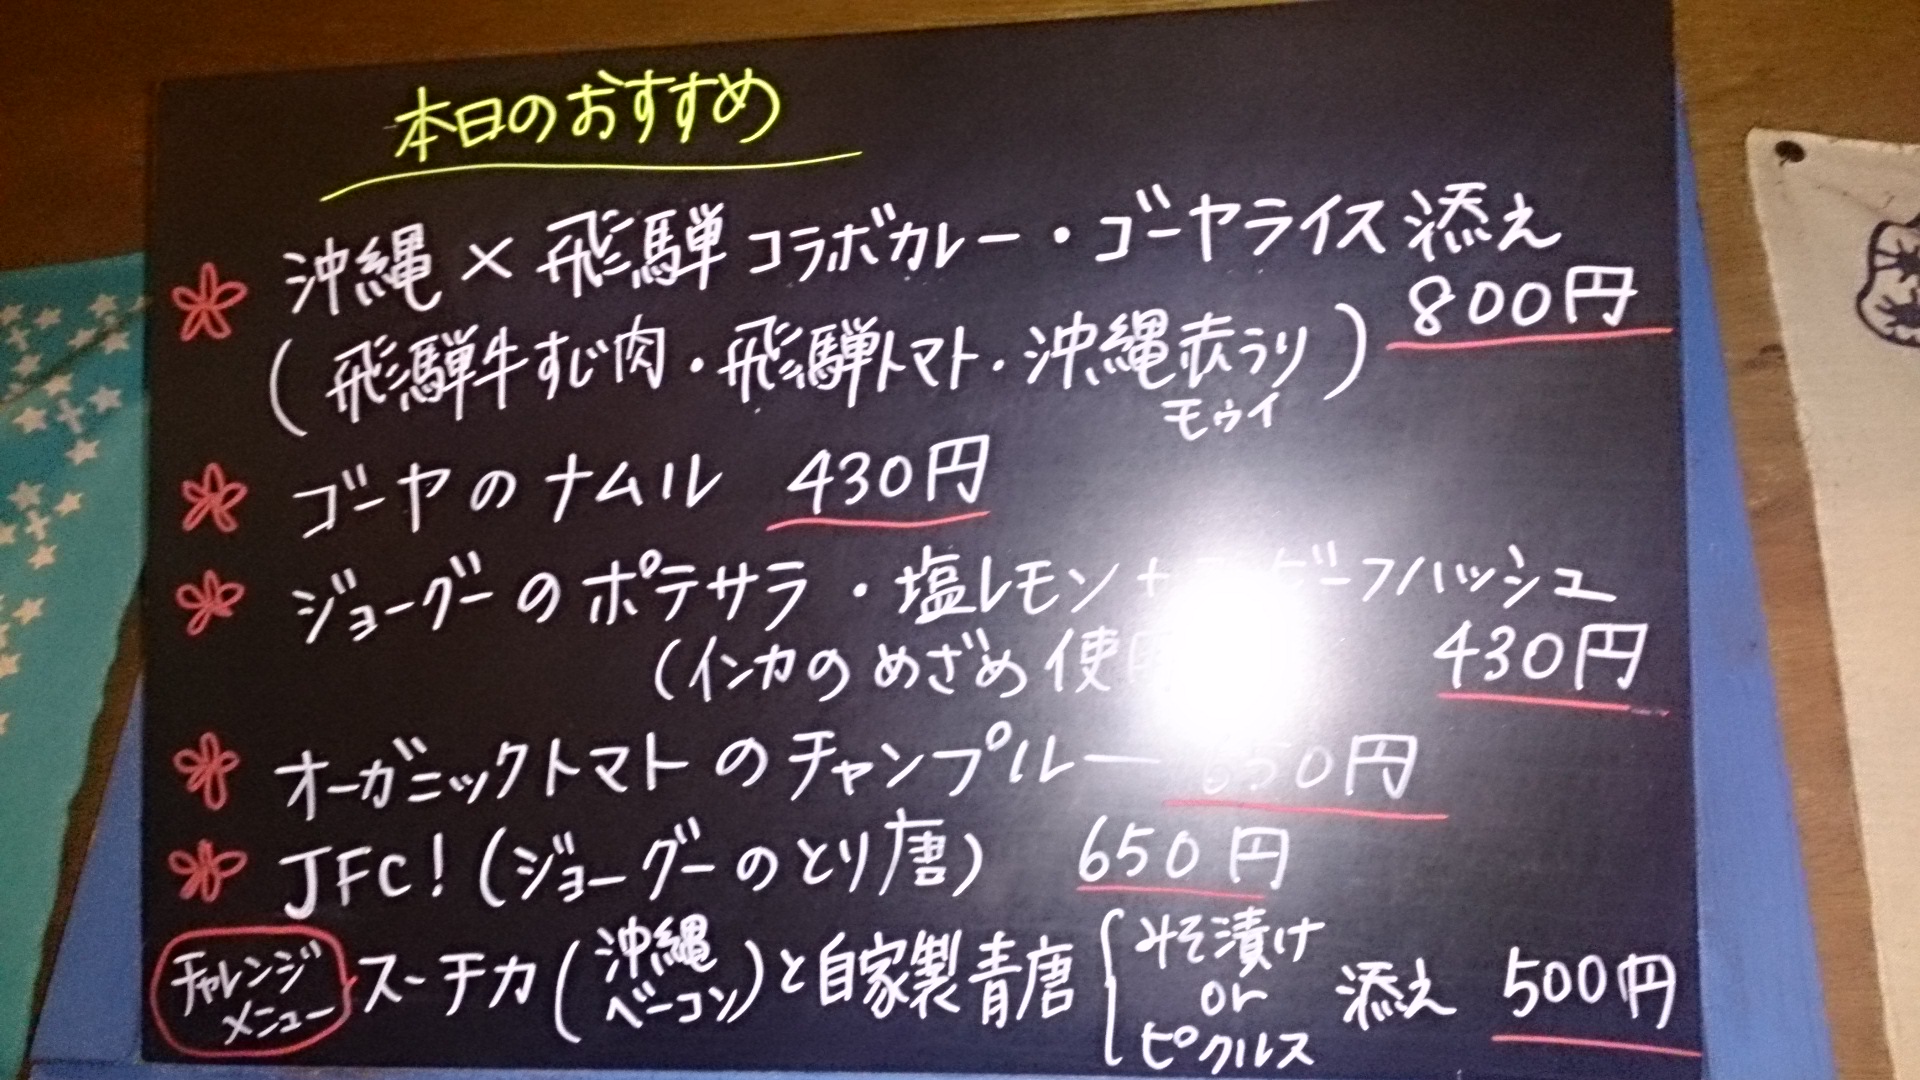 本日のおすすめ
沖縄×飛騨コラボカレー・ゴーヤライス添え
800円
(飛騨牛すじ肉・飛騨トマト・沖縄赤うり)
モウイ
ゴーヤのナムル 430円
ジョーグーのポテサラ・塩レモン+ビーフハッシュ
(インカのめざめ使用 430円
オーガニックトマトのチャンプルー 650円
JFC!(ジョーグーのとり唐) 650円
チャレンジメニュー スーチカ(沖縄ベーコン)と自家製青唐{みそ漬け or ピクルス 添え 500円